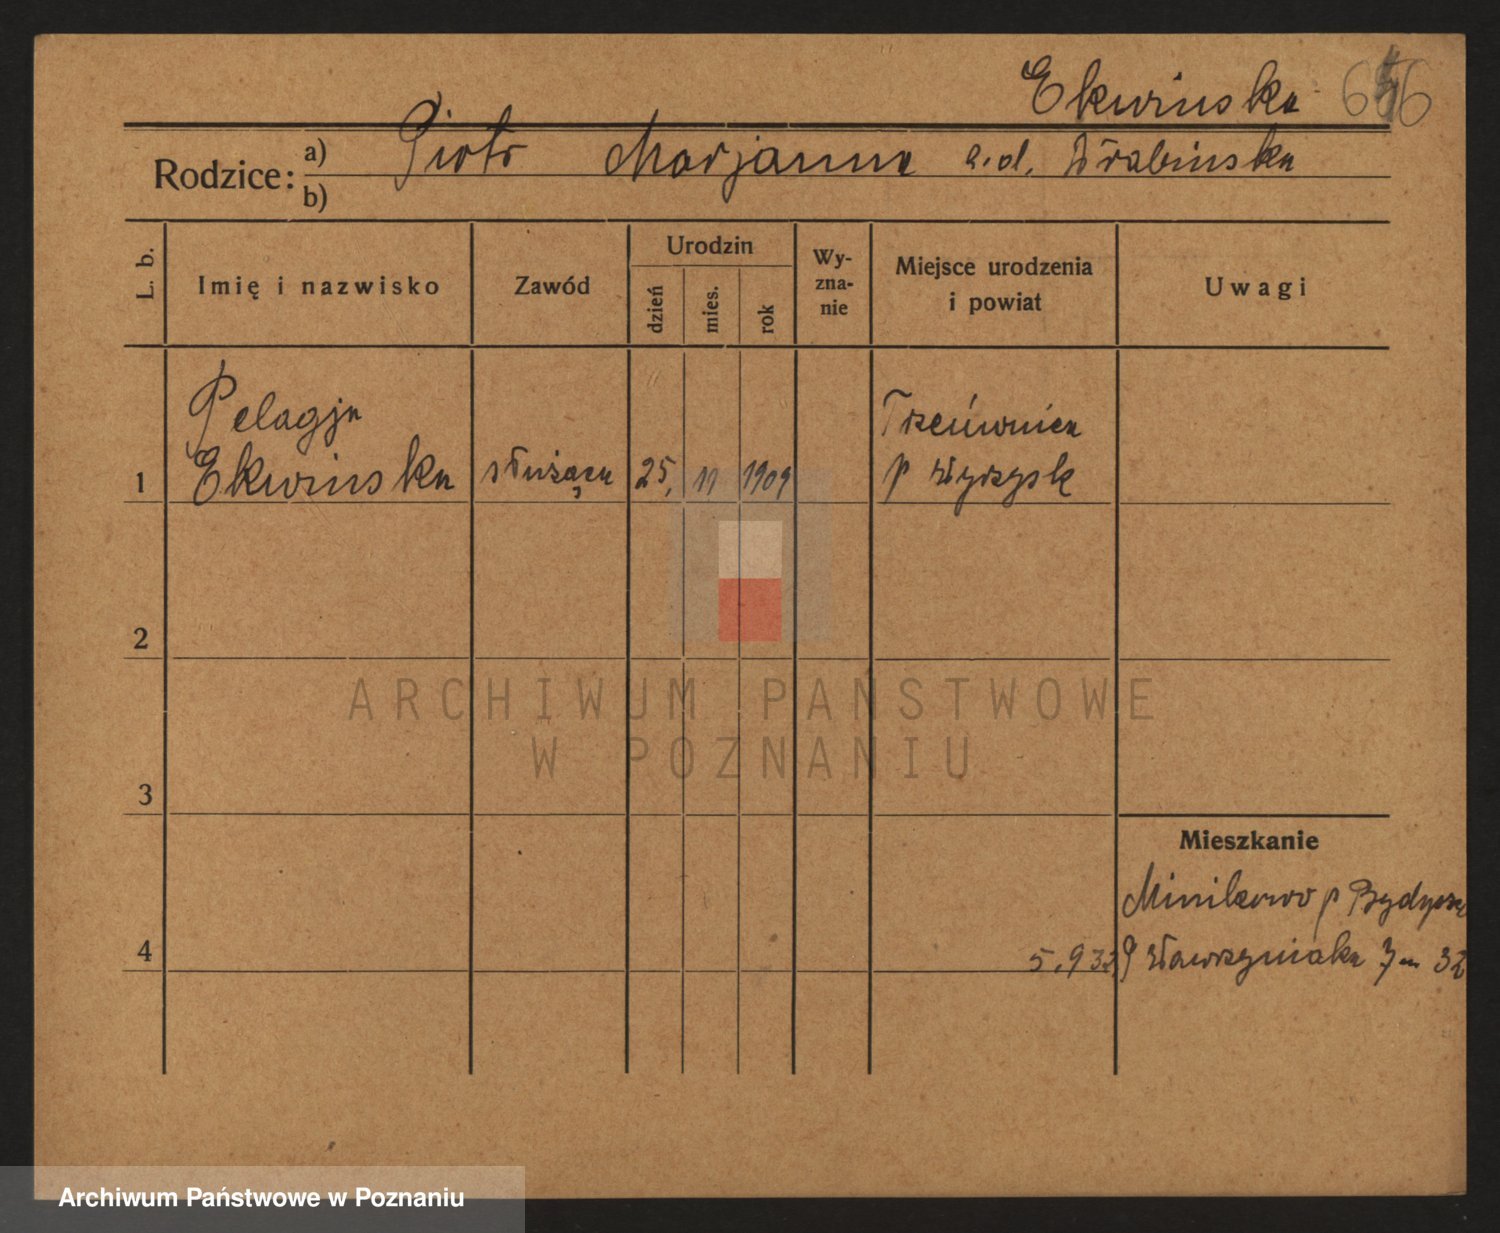 Ekwinska 656
Rodzice: a) Piotr Marjanna z.d. Drabinska
b)
L. b. Imię i nazwisko Zawód Urodzin dzień mies. rok Wy-zna-nie Miejsce urodzenia i powiat Uwagi
Pelagja Trzeciewnica
1 Ekwinska służąca 25. 11 1909 p Wyrzysk
2
ARCHIWUM PAŃSTWOWE
W POZNANIU
3
Mieszkanie
Minikowo p Bydgoszcz
4 5.9 32 Wawrzyniaka 32
Archiwum Państwowe w Poznaniu